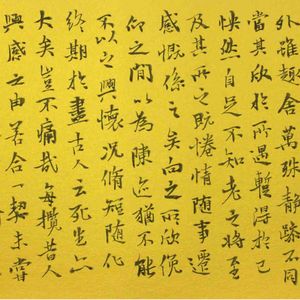 外雖趣舍萬殊靜躁不同
當其欣於所遇暫得於己
快然自足不知老之將至
及其所之既惓情隨事遷
感慨係之矣向之所欣俛
仰之間以為陳迹猶不能
不以之興懷況脩短隨化
終期於盡古人云死生亦
大矣豈不痛哉每攬昔人
興感之由若合一契未嘗